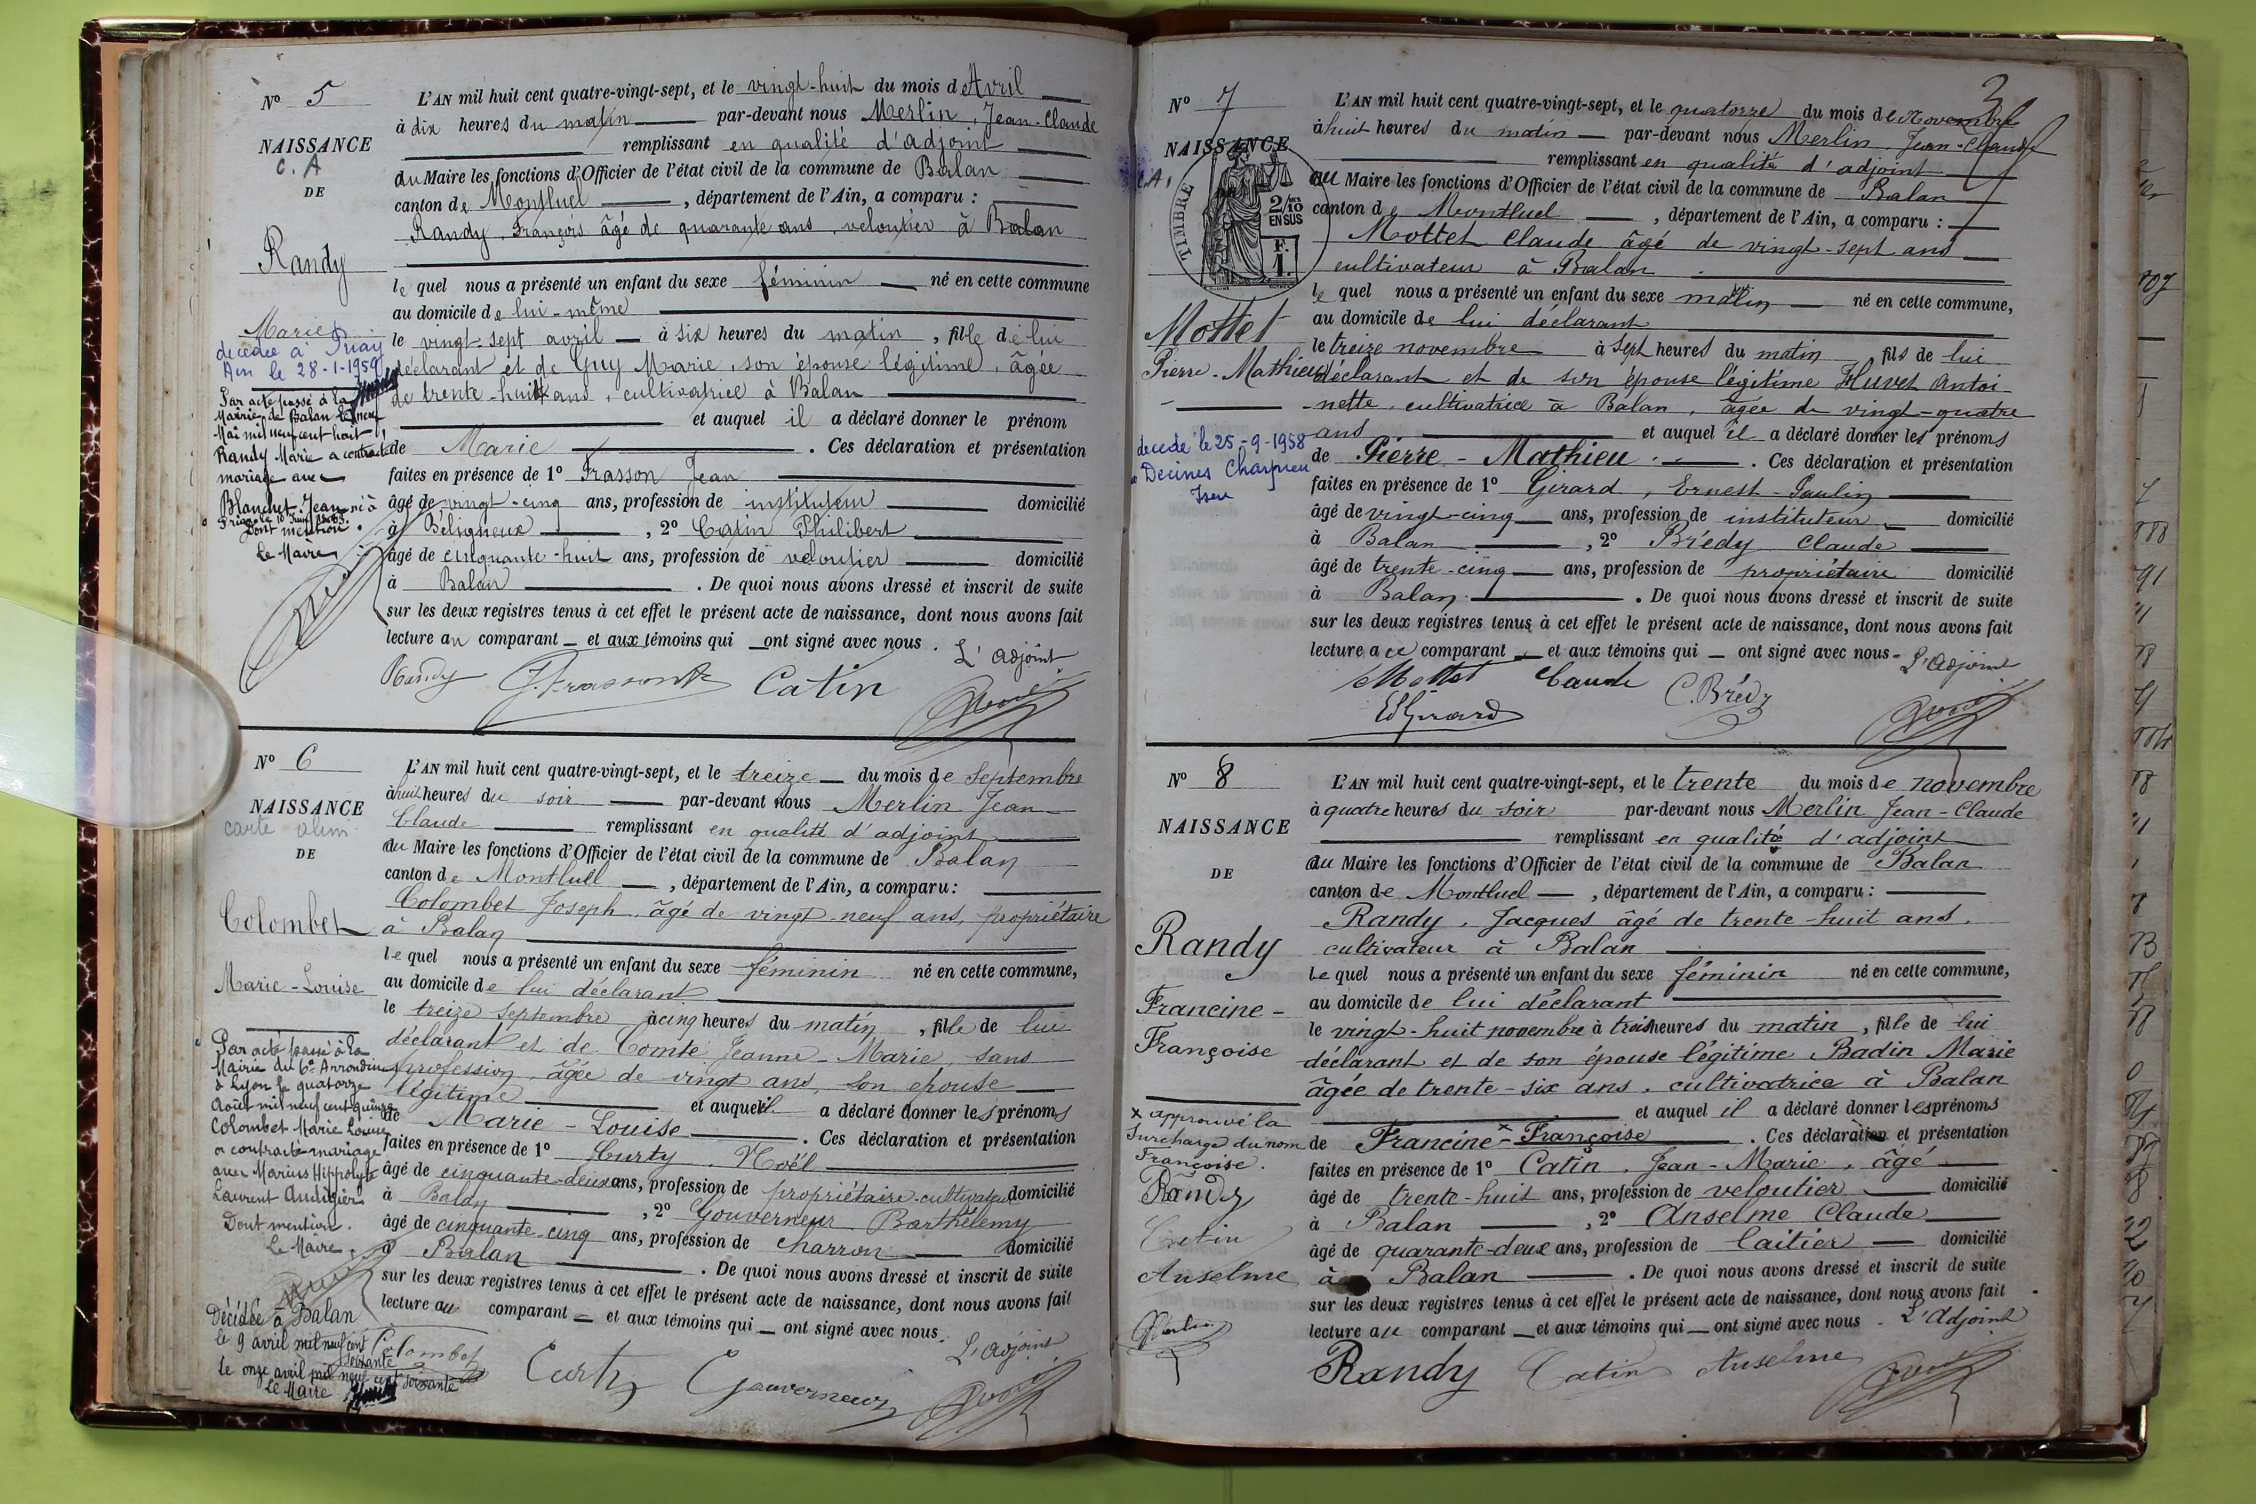 N° 5
NAISSANCE
C. A
DE
Randy
Marie
décédée à Priay
Ain le 28-1-1959
Par acte passé à la
Mairie de Balan le neuf
Mai mil neuf cent huit
Randy Marie a contracté
mariage avec
Blanchet Jean né à
Dont mention.
Le Maire
L'AN mil huit cent quatre-vingt-sept, et le vingt-huit du mois d'Avril
à dix heures du matin par-devant nous Merlin, Jean-Claude
remplissant en qualité d'adjoint
au Maire les fonctions d'Officier de l'état civil de la commune de Balan
canton de Montluel, département de l'Ain, a comparu :
Randy, François âgé de quarante ans, veloutier à Balan
le quel nous a présenté un enfant du sexe féminin né en cette commune
au domicile de lui-même
le vingt-sept avril à six heures du matin, fille de lui
déclarant et de Guy Marie, son épouse légitime, âgée
de trente-huit ans, cultivatrice à Balan
et auquel il a déclaré donner le prénom
de Marie. Ces déclaration et présentation
faites en présence de 1° Frasson Jean
âgé de vingt-cinq ans, profession de instituteur domicilié
à Béligneux, 2° Catin Philibert
âgé de cinquante-huit ans, profession de veloutier domicilié
à Balan. De quoi nous avons dressé et inscrit de suite
sur les deux registres tenus à cet effet le présent acte de naissance, dont nous avons fait
lecture au comparant et aux témoins qui ont signé avec nous.
L'adjoint
Randy Catin
N° 6
NAISSANCE
carte alim
DE
Colombet
Marie-Louise
Par acte passé à la
Mairie du 6e Arrondim
à Lyon le quatorze
Août mil neuf cent quinze
Colombet Marie Louise
a contracté mariage
avec Marius Hippolyte
Laurent Audigier
Dont mention.
Le Maire.
Décédée à Balan
le 9 avril mil neuf cent
soixante
le onze avril mil neuf cent soixante
Le Maire
L'AN mil huit cent quatre-vingt-sept, et le treize du mois de Septembre
à huit heures du soir par-devant nous Merlin Jean
Claude remplissant en qualité d'adjoint
au Maire les fonctions d'Officier de l'état civil de la commune de Balan
canton de Montluel, département de l'Ain, a comparu :
Colombet Joseph, âgé de vingt-neuf ans, propriétaire
à Balan
le quel nous a présenté un enfant du sexe féminin né en cette commune,
au domicile de lui déclarant
le treize septembre à cinq heures du matin, fille de lui
déclarant et de Comte Jeanne-Marie, sans
profession, âgée de vingt ans, son épouse
légitime et auquel il a déclaré donner les prénoms
de Marie-Louise. Ces déclaration et présentation
faites en présence de 1° Curty, Noël
âgé de cinquante-deux ans, profession de propriétaire-cultivateur domicilié
à Balan, 2° Gouverneur Barthélemy
âgé de cinquante-cinq ans, profession de charron domicilié
à Balan. De quoi nous avons dressé et inscrit de suite
sur les deux registres tenus à cet effet le présent acte de naissance, dont nous avons fait
lecture au comparant et aux témoins qui ont signé avec nous.
L'adjoint
Colombet Curty Gouverneur
3
N° 7
NAISSANCE
C.A.
TIMBRE
2/10
EN SUS
F.
1.
Mottet
Pierre-Mathieu
décédé le 25-9-1958
à Décines Charpieu
Isère
L'AN mil huit cent quatre-vingt-sept, et le quatorze du mois de Novembre
à huit heures du matin par-devant nous Merlin Jean-Claude
remplissant en qualité d'adjoint
au Maire les fonctions d'Officier de l'état civil de la commune de Balan
canton de Montluel, département de l'Ain, a comparu :
Mottet Claude âgé de vingt-sept ans
cultivateur à Balan
le quel nous a présenté un enfant du sexe né en cette commune,
au domicile de lui déclarant
le treize novembre à sept heures du matin fils de lui
déclarant et de son épouse légitime Huvet Antoi-
nette, cultivatrice à Balan, âgée de vingt-quatre
ans et auquel il a déclaré donner les prénoms
de Pierre-Mathieu. Ces déclaration et présentation
faites en présence de 1° Girard, Ernest-Paulin
âgé de vingt-cinq ans, profession de instituteur domicilié
à Balan, 2° Brédy Claude
âgé de trente-cinq ans, profession de propriétaire domicilié
à Balan. De quoi nous avons dressé et inscrit de suite
sur les deux registres tenus à cet effet le présent acte de naissance, dont nous avons fait
lecture a ce comparant et aux témoins qui ont signé avec nous.
L'Adjoint
Mottet Claude C. Brédy
EGirard
N° 8
NAISSANCE
DE
Randy
Francine-
Françoise
x approuvé la
surcharge du nom
Françoise.
Randy
Catin
Anselme
Merlin
L'AN mil huit cent quatre-vingt-sept, et le trente du mois de novembre
à quatre heures du soir par-devant nous Merlin Jean-Claude
remplissant en qualité d'adjoint
au Maire les fonctions d'Officier de l'état civil de la commune de Balan
canton de Montluel, département de l'Ain, a comparu :
Randy, Jacques âgé de trente-huit ans,
cultivateur à Balan
le quel nous a présenté un enfant du sexe féminin né en cette commune,
au domicile de lui déclarant
le vingt-huit novembre à trois heures du matin, fille de lui
déclarant et de son épouse légitime Badin Marie
âgée de trente-six ans, cultivatrice à Balan
et auquel il a déclaré donner les prénoms
de Francine-x Françoise. Ces déclaration et présentation
faites en présence de 1° Catin, Jean-Marie, âgé
âgé de trente-huit ans, profession de veloutier domicilié
à Balan, 2° Anselme Claude
âgé de quarante-deux ans, profession de laitier domicilié
à Balan. De quoi nous avons dressé et inscrit de suite
sur les deux registres tenus à cet effet le présent acte de naissance, dont nous avons fait
lecture au comparant et aux témoins qui ont signé avec nous.
L'Adjoint
Randy Catin Anselme